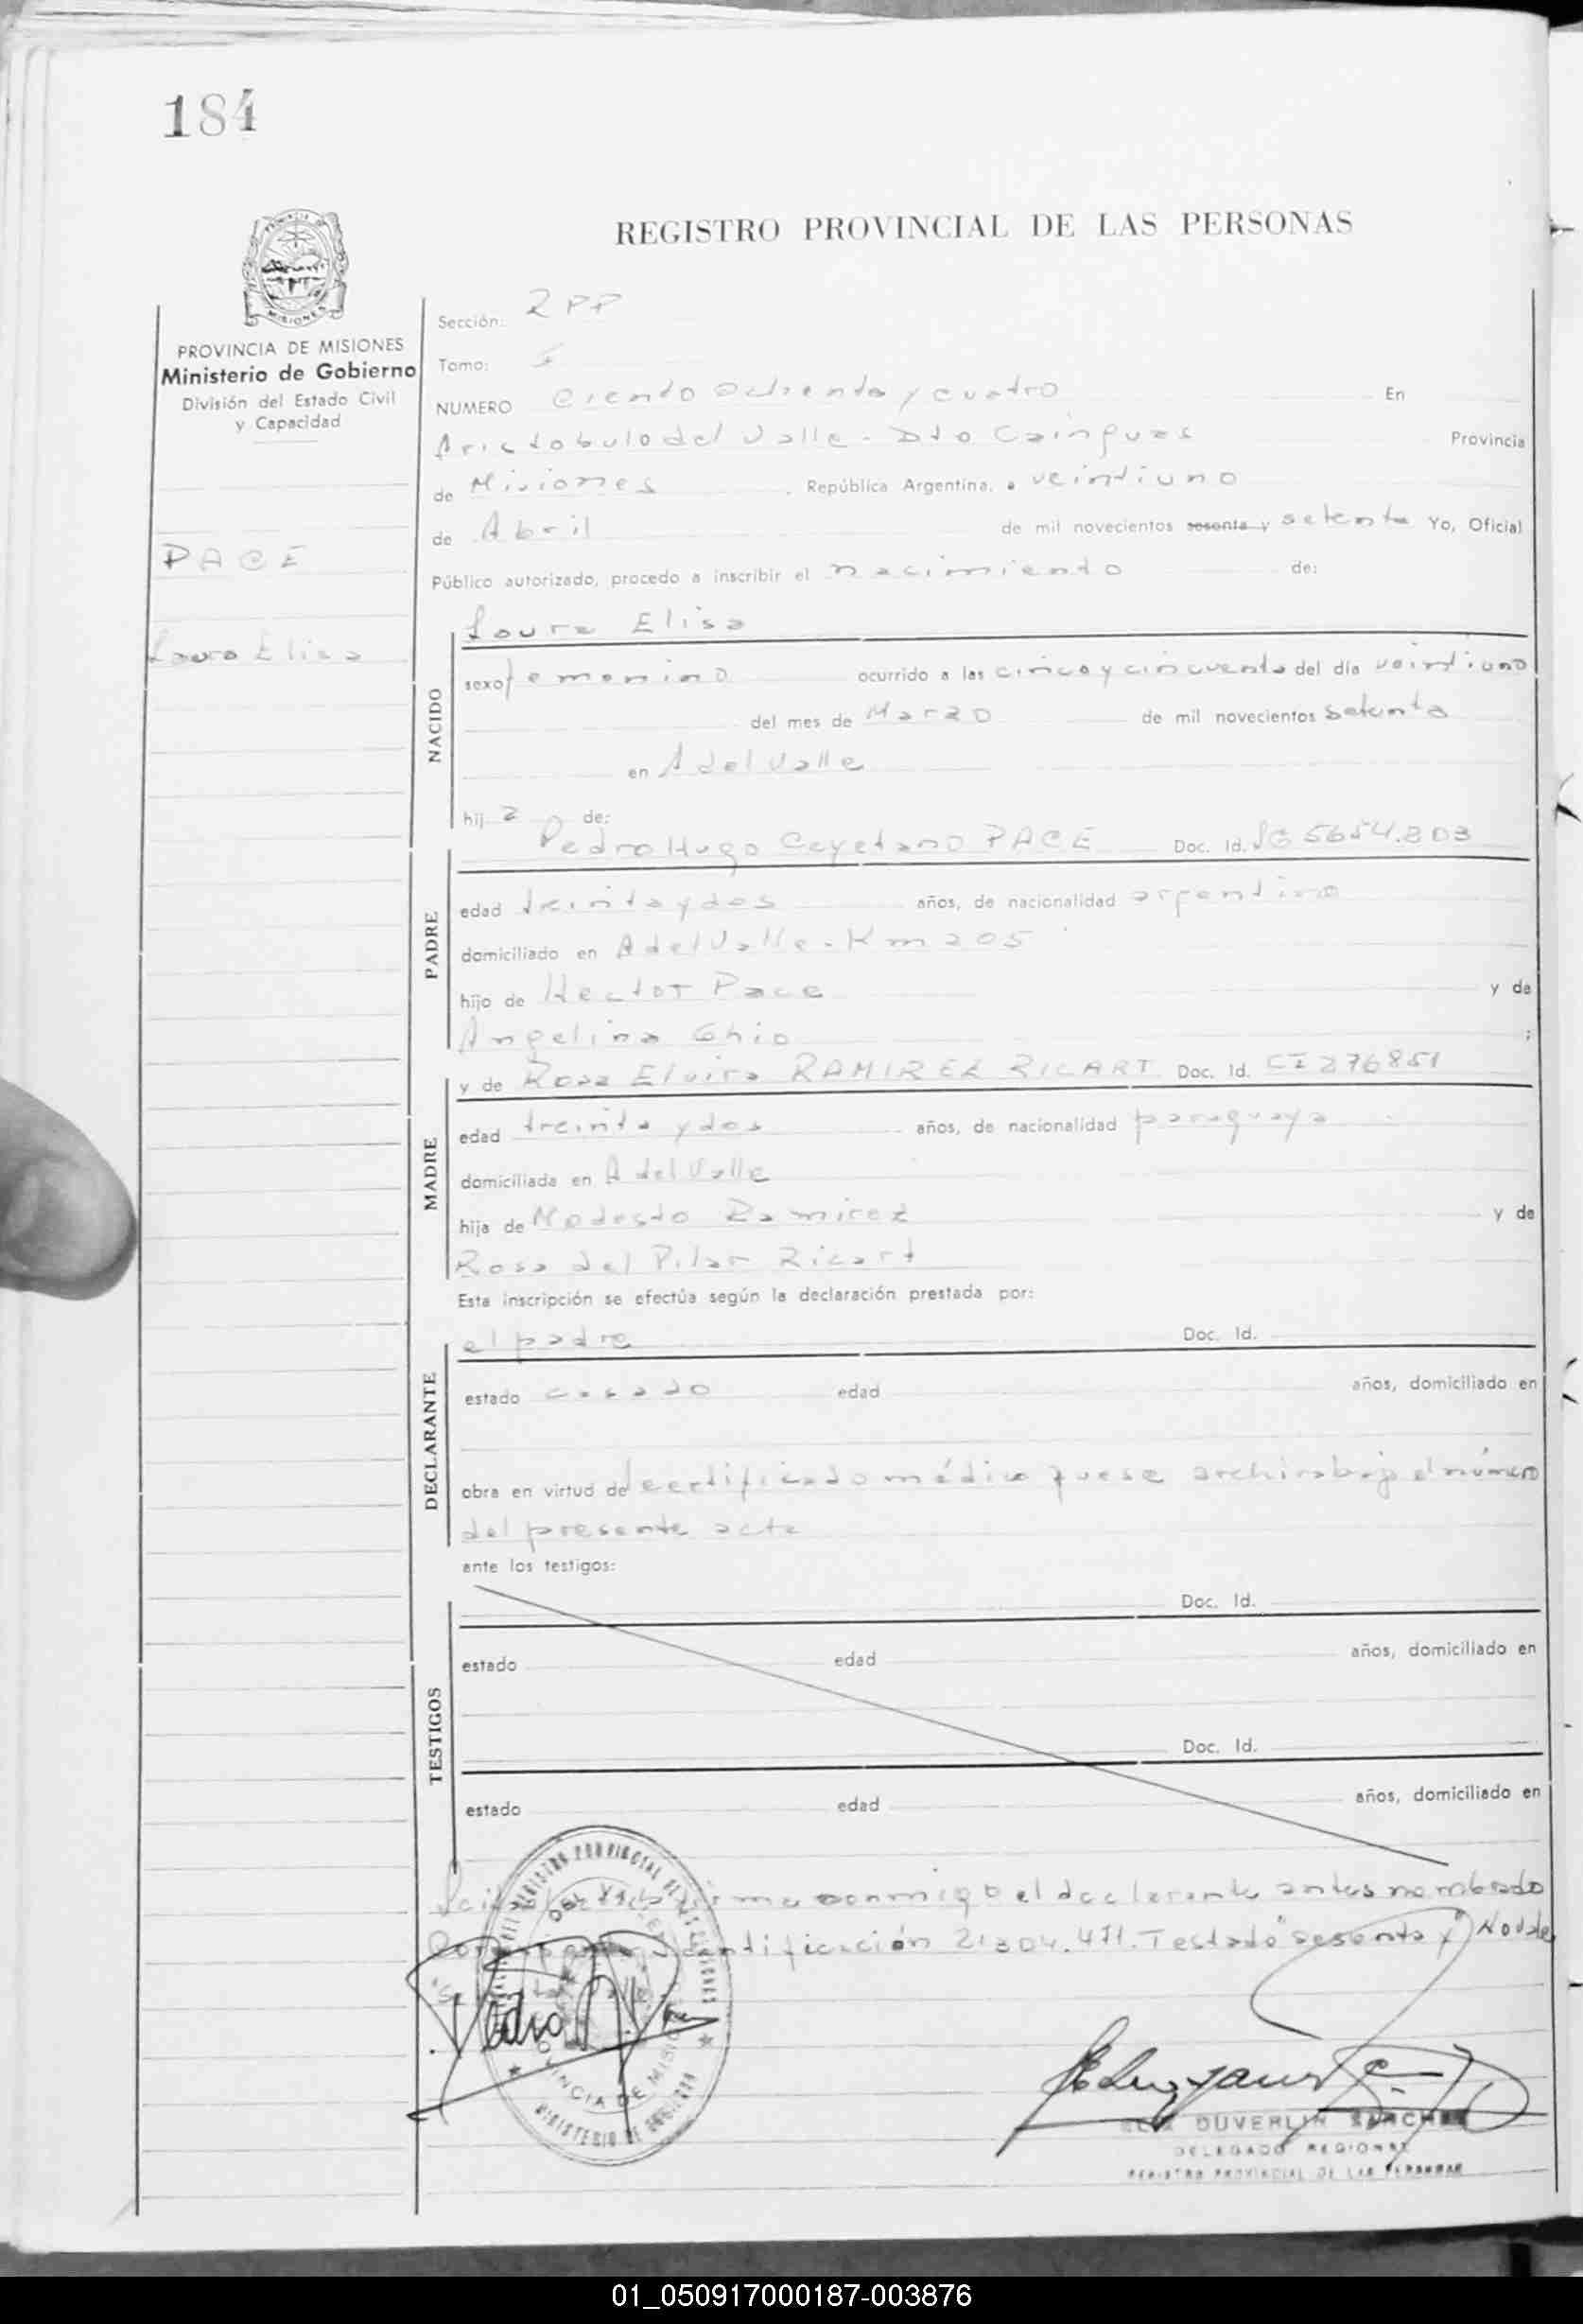 184
REGISTRO PROVINCIAL DE LAS PERSONAS
MISIONES
PROVINCIA DE MISIONES
Ministerio de Gobierno
División del Estado Civil
y Capacidad
PACE
Laura Elisa
Sección: RPP
Tomo: I
NUMERO Ciento Ochenta y cuatro En
Aristobulo del Valle - Dto Cainguas Provincia
de Misiones, República Argentina, a veintiuno
de Abril de mil novecientos sesenta y setenta Yo, Oficial
Público autorizado, procedo a inscribir el nacimiento de:
Laura Elisa
NACIDO
sexo femenino ocurrido a las cinco y cincuenta del día veintiuno
del mes de Marzo de mil novecientos setenta
en A del Valle
hij a de:
Pedro Hugo Cayetano PACE Doc. Id. 5654.803
PADRE
edad treinta y dos años, de nacionalidad argentino
domiciliado en A del Valle - Km 205
hijo de Hector Pace y de
Angelina Ghio ;
y de Rosa Elvira RAMIREZ RICART Doc. Id. CI 276851
MADRE
edad treinta y dos años, de nacionalidad paraguaya
domiciliada en A del Valle
hija de Modesto Ramirez y de
Rosa del Pilar Ricart
Esta inscripción se efectúa según la declaración prestada por:
el padre Doc. Id.
DECLARANTE
estado casado edad años, domiciliado en
obra en virtud de certificado médico que se archiva bajo el número
del presente acta
ante los testigos:
Doc. Id.
TESTIGOS
estado edad años, domiciliado en
Doc. Id.
estado edad años, domiciliado en
Leida firma conmigo el declarante antes nombrado
identificación 21304.471. Testado "sesenta y" No vale
Pedro
DUVERLIN SANCHEZ
DELEGADO REGIONAL
REGISTRO PROVINCIAL DE LAS PERSONAS
01_050917000187-003876